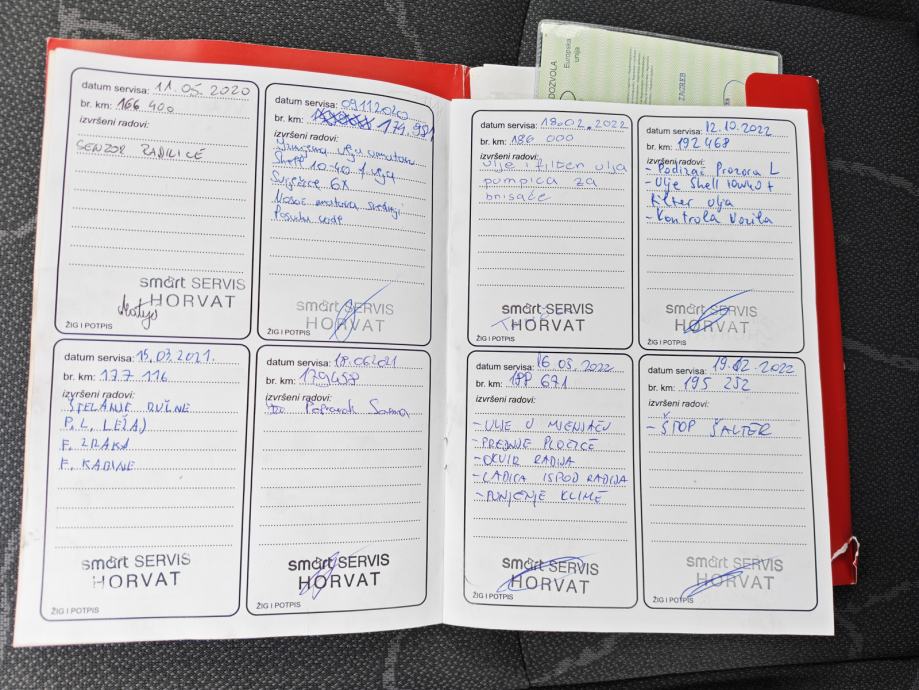 DOZVOLA
Europska
unija
ZAGREB
datum servisa: 11.05.2020
br. km: 166 400
izvršeni radovi:
SENZOR RADILICE
smart SERVIS
HORVAT
ŽIG I POTPIS
datum servisa: 09.11.2020
br. km: 174.981
izvršeni radovi:
Shell 10-40 f. ulja
Svjećice 6X
Nosač motora srednji
Posuda vode
smart SERVIS
HORVAT
ŽIG I POTPIS
datum servisa: 15.03.2021.
br. km: 177 116
izvršeni radovi:
ŠTELANJE RUČNE
P. L. LEŽAJ
F. ZRAKA
F. KABINE
smart SERVIS
HORVAT
ŽIG I POTPIS
datum servisa: 18.06.2021
br. km: 179458
izvršeni radovi:
Popravak
smart SERVIS
HORVAT
ŽIG I POTPIS
datum servisa: 18.02.2022
br. km: 186 000
izvršeni radovi:
ulje i filter ulja
pumpica za
brisače
smart SERVIS
HORVAT
ŽIG I POTPIS
datum servisa: 12.10.2022
br. km: 192 468
izvršeni radovi:
- Podizač Prozora L
- Ulje Shell 10w40 +
filter ulja
- Kontrola Vozila
smart SERVIS
HORVAT
ŽIG I POTPIS
datum servisa: 16 05. 2022
br. km: 671
izvršeni radovi:
- ULJE U MJENJAČU
- PREDNJE PLOČICE
- OKVIR RADIJA
- LADICA ISPOD RADIJA
- PUNJENJE KLIME
smart SERVIS
HORVAT
ŽIG I POTPIS
datum servisa: 19.12.2022
br. km: 195 252
izvršeni radovi:
- ŠTOP ŠALTER
smart SERVIS
HORVAT
ŽIG I POTPIS